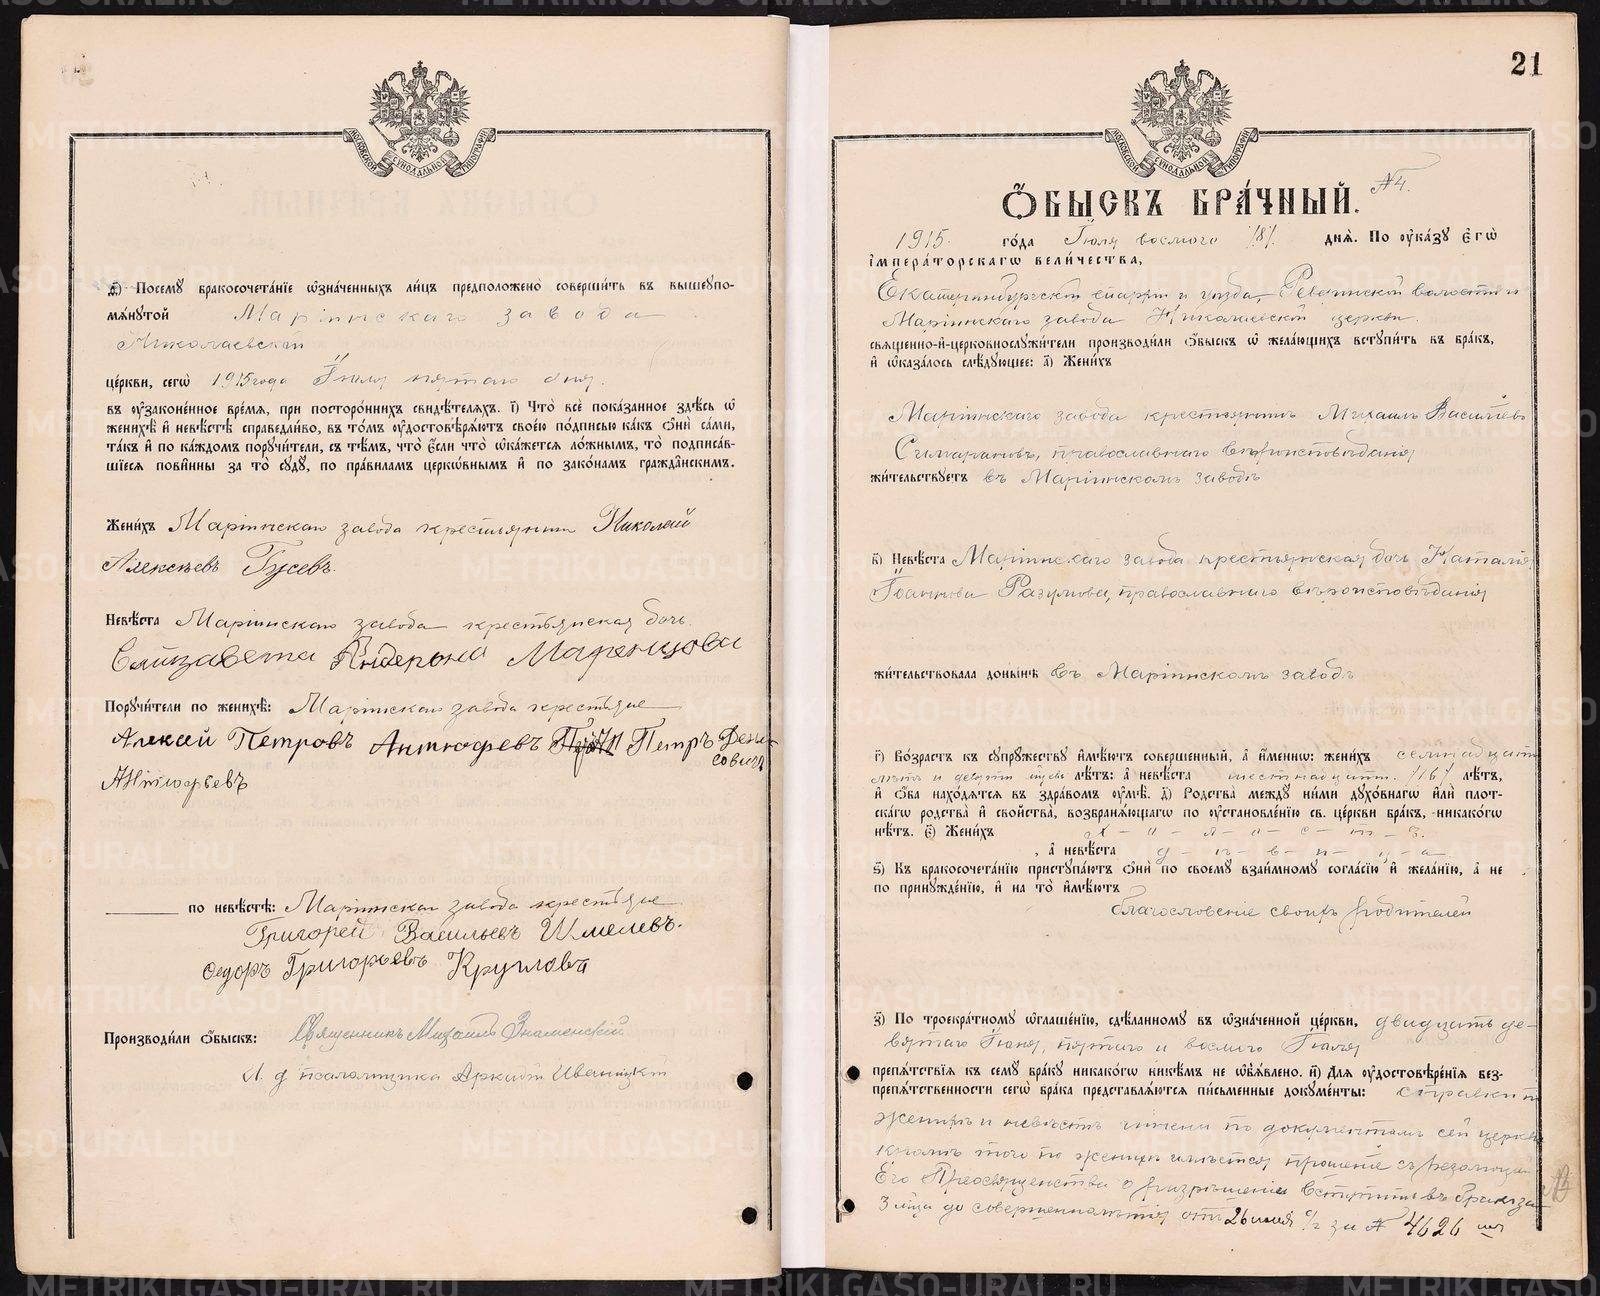 МОСКОВСКОЙ СѴНОДАЛЬНОЙ ТИПОГРАФІИ
д҃) Посемꙋ бракосочета́нїе ѡ҆зна́ченныхъ ли́цъ предположено̀ соверши́ть въ вышеꙋпо-
мѧ́нꙋтой Маріинскаго завода
Николаевской
це́ркви, сегѡ̀ 1915 года Іюля пятаго дня.
въ ᲂу҆зако́ненное вре́мѧ, при посторо́ннихъ свидѣ́телѧхъ. і҃) Что̀ всѐ пока́занное здѣ́сь ѡ҆
женихѣ̀ и҆ невѣ́стѣ справедли́во, въ то́мъ ᲂу҆достовѣрѧ́ютъ свое́ю по́дписью ка́къ ѻ҆нѝ са́ми,
та́къ и҆ по ка́ждомъ порꙋчи́тели, съ тѣ́мъ, что̀ є҆́сли что̀ ѡ҆ка́жетсѧ ло́жнымъ, то̀ подписа́в-
шїесѧ пови́нны за то̀ сꙋдꙋ̀, по пра́виламъ церкѡ́внымъ и҆ по зако́намъ гражда́нскимъ.
Жени́хъ Маріинскаго завода крестьянинъ Николай
Алексѣевъ Гусевъ.
Невѣ́ста Маріинскаго завода крестьянская дочь
Елизавета Маренцова
Порꙋчи́тели по женихѣ̀: Маріинскаго завода крестьяне
Алексѣй Петровъ Антюфѣевъ Петръ Денисовичъ
Антюфьевъ
по невѣ́стѣ: Маріинскаго завода крестьяне
Григорей Васильевъ Шмелевъ.
Федоръ Григорьевъ Кругловъ
Производи́ли ѻ҆́быскъ: Священникъ Михаилъ Знаменскій
И. д. псаломщика Аркадій Иваницкій
21
МОСКОВСКОЙ СѴНОДАЛЬНОЙ ТИПОГРАФІИ
Ѻ҆́БЫСКЪ БРА́ЧНЫЙ. №4.
1915. го́да Іюля восьмого /8/ днѧ̀. По ᲂу҆ка́зꙋ є҆гѡ̀
і҆мпера́торскагѡ вели́чества,
Екатеринбургской епархіи и уѣзда, Ревдинской волости и
Маріинскаго завода Николаевской церкви
свѧще́нно-и҆-церковнослꙋжи́тели производи́ли ѻ҆́быскъ ѡ҆ жела́ющихъ встꙋпи́ть въ бра́къ,
и҆ ѡ҆каза́лось слѣ́дꙋющее: а҃) Жени́хъ
Маріинскаго завода крестьянинъ Михаилъ Васильевъ
Симарановъ, православнаго вѣроисповѣданія
жи́тельствꙋетъ въ Маріинскомъ заводѣ
в҃) Невѣ́ста Маріинскаго завода крестьянская дочь Наталія
Іоаннова Разумова, православнаго вѣроисповѣданія
жи́тельствовала доны́нѣ въ Маріинскомъ заводѣ
г҃) Во́зрастъ къ сꙋпрꙋ́жествꙋ и҆мѣ́ютъ соверше́нный, а҆ и҆́меннѡ: жени́хъ семнадцати
лѣтъ и девяти мѣс. лѣ́тъ: а҆ невѣ́ста шестнадцати /16/ лѣ́тъ,
и҆ ѻ҆́ба нахо́дѧтсѧ въ здра́вомъ ᲂу҆мѣ̀. д҃) Родства̀ междꙋ̀ ни́ми дꙋхо́внагѡ и҆лѝ пло́т-
скагѡ родства̀ и҆ сво́йства, возбранѧ́ющагѡ по ᲂу҆становле́нїю св. це́ркви бра́къ, никако́гѡ
нѣ́тъ. є҃) Жени́хъ х-о-л-о-с-т-ъ.
, а҆ невѣ́ста д-ѣ-в-и-ц-а
ѕ҃) Къ бракосочета́нїю пристꙋпа́ютъ ѻ҆нѝ по своемꙋ̀ взаи́мномꙋ согла́сїю и҆ жела́нїю, а҆ не
по принꙋжде́нїю, и҆ на то̀ и҆мѣ́ютъ
благословеніе своихъ родителей
з҃) По троекра́тномꙋ ѡ҆глаше́нїю, сдѣ́ланномꙋ въ ѡ҆зна́ченной це́ркви, двадцать де-
вятаго Іюня, пятаго и восьмого Іюля
препѧ́тствїѧ къ семꙋ̀ бра́кꙋ никако́гѡ никѣ́мъ не ѡ҆б̾ѧ́влено. и҃) Длѧ̀ ᲂу҆достовѣре́нїѧ без-
препѧ́тственности сегѡ̀ бра́ка представлѧ́ютсѧ пи́сьменные докꙋме́нты: справки о
женихѣ и невѣстѣ по документамъ сей церкви
кромѣ того по женихѣ имѣется прошеніе съ резолюціей
Его Преосвященства о разрѣшеніи вступить въ бракъ за
3 мѣс. до совершеннолѣтія отъ 26 іюня с/г за № 4626
METRIKI.GASO-URAL.RU